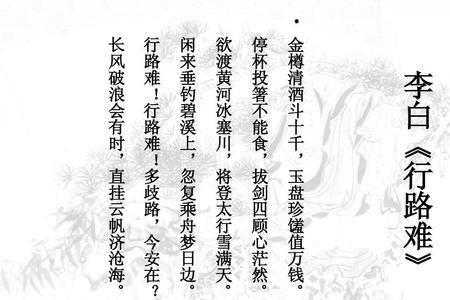 李白《行路难》
•
金樽清酒斗十千，玉盘珍馐值万钱。
停杯投箸不能食，拔剑四顾心茫然。
欲渡黄河冰塞川，将登太行雪满天。
闲来垂钓碧溪上，忽复乘舟梦日边。
行路难！行路难！多歧路，今安在？
长风破浪会有时，直挂云帆济沧海。